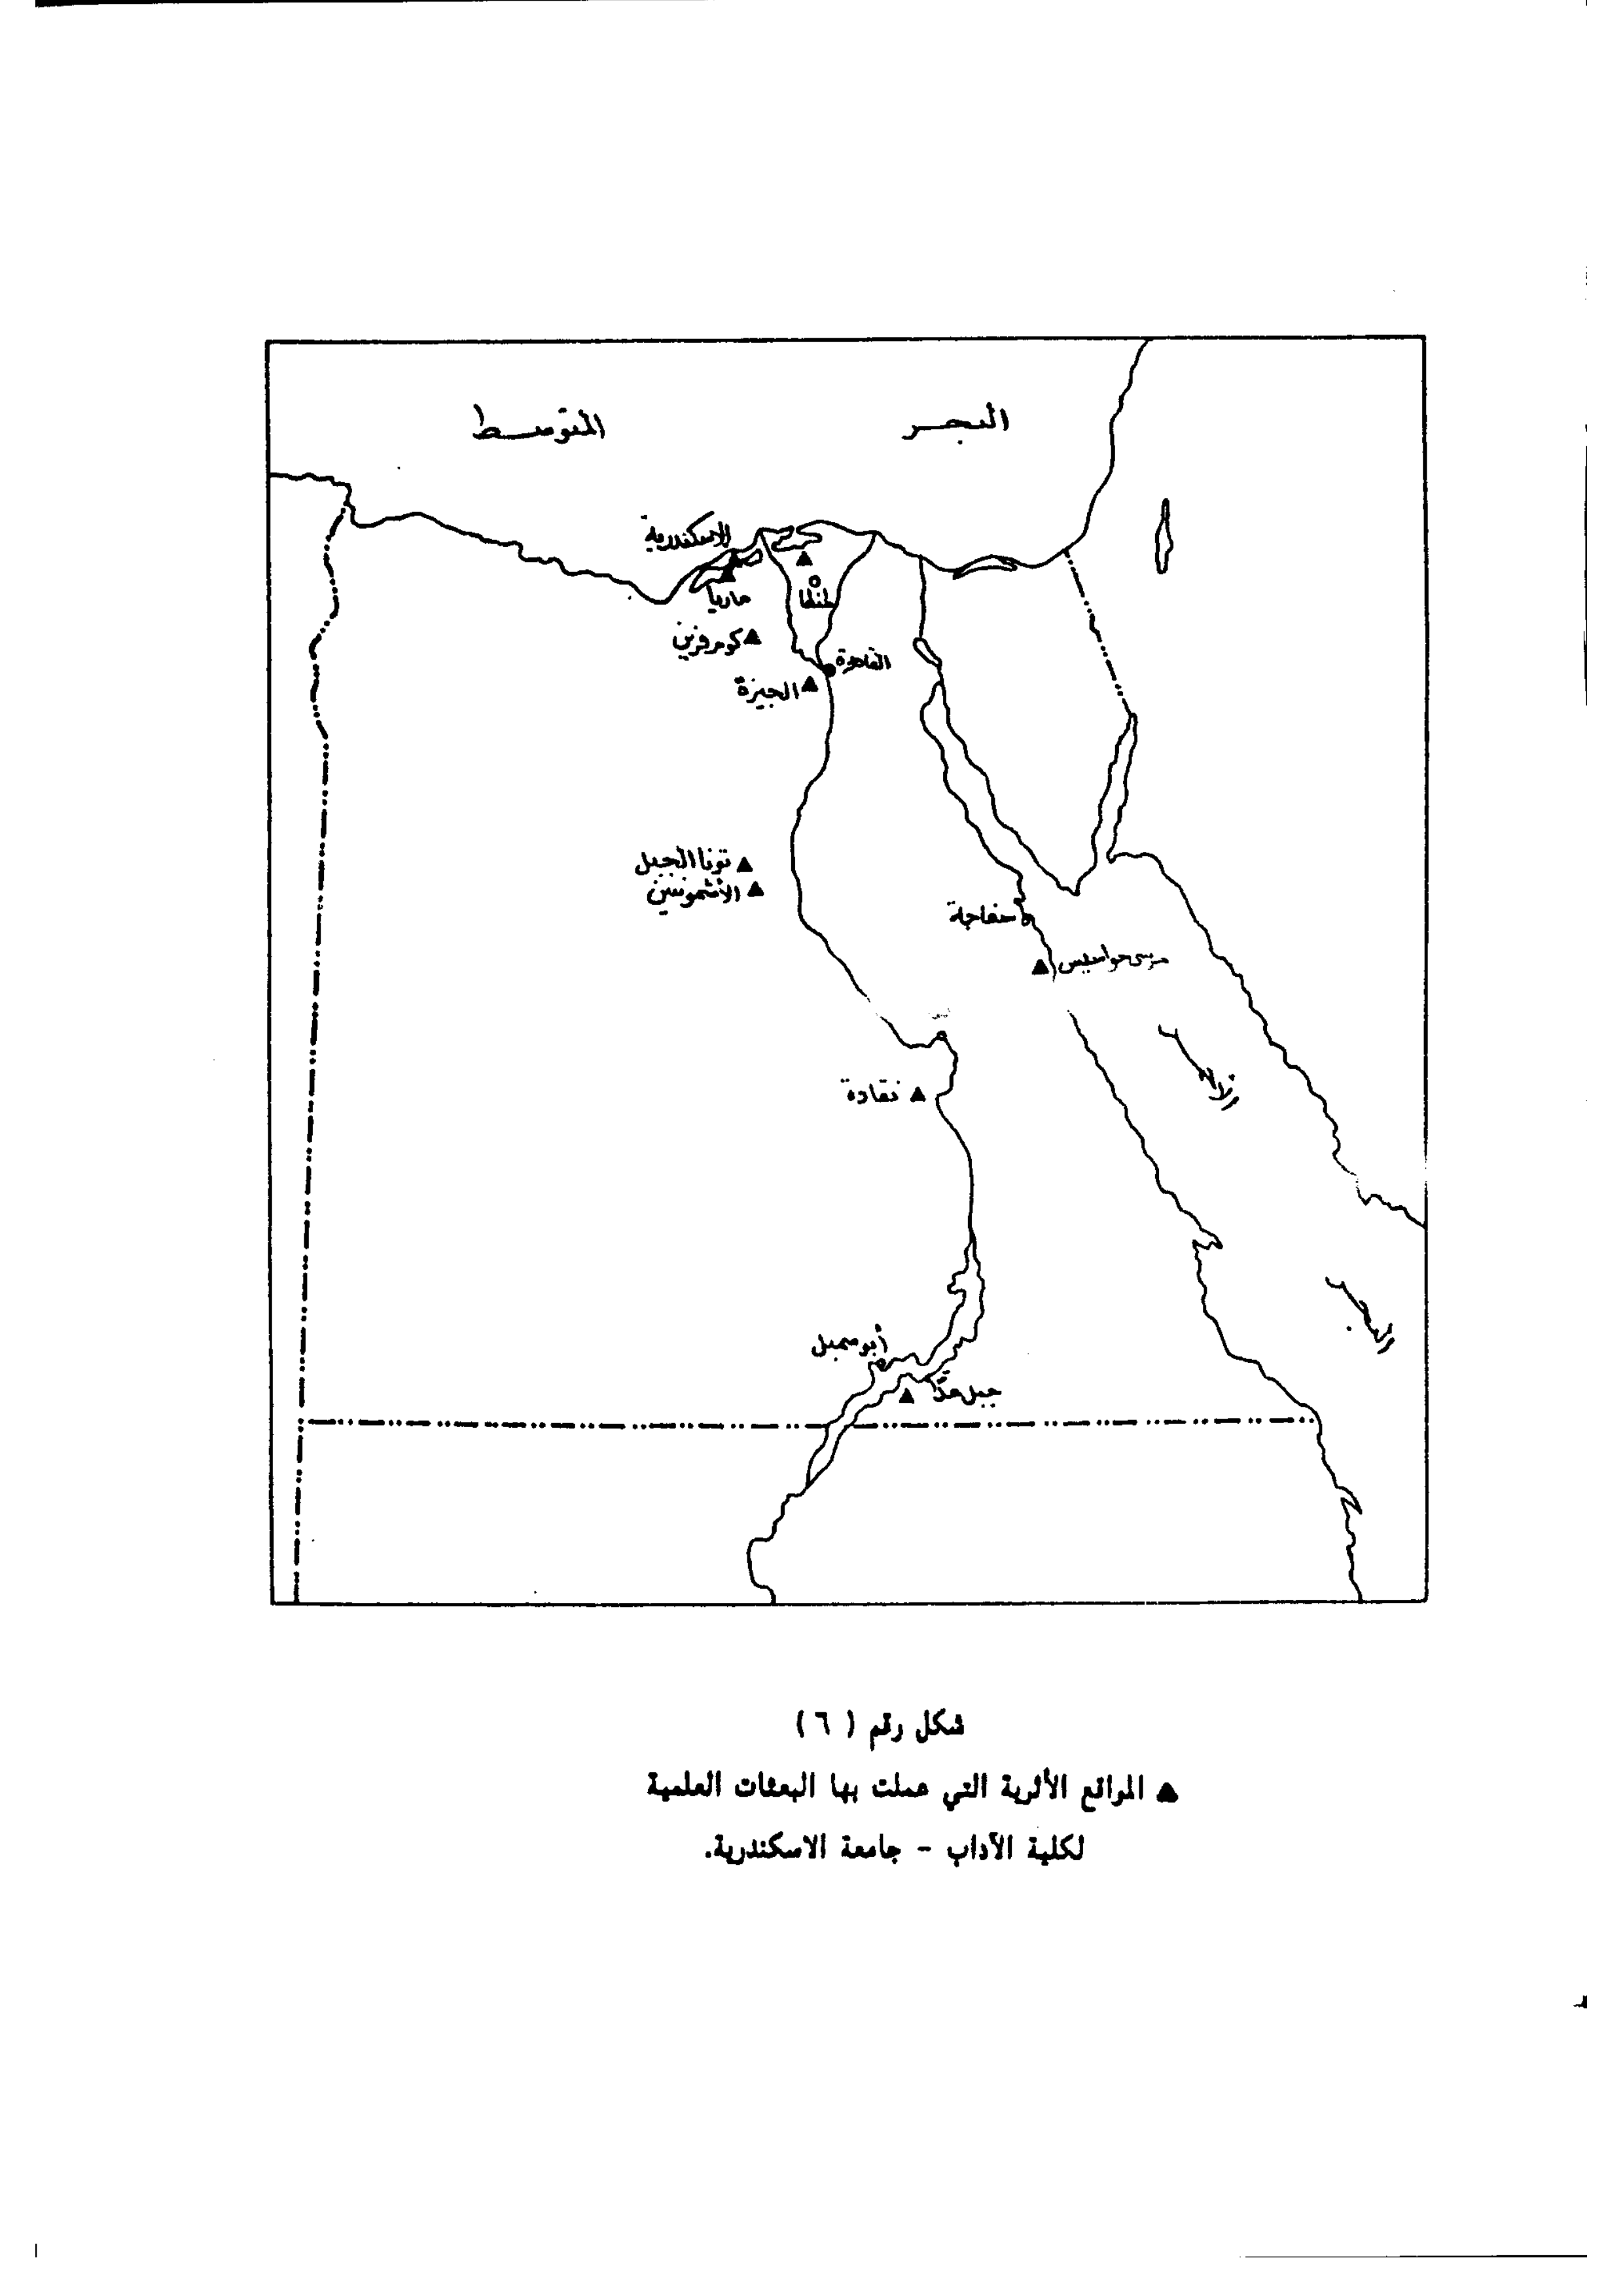 البحر المتوسط
الاسكندرية
ماريا
طنطا
كوم فرين
القاهرة
الجيزة
تونا الجبل
الأشمونين
سفاجة
مرسى جواسيس
نقادة
البحر
أبو سمبل
جبل عدّا
شكل رقم ( ٦ )
▲ المواقع الأثرية التي عملت بها البعثات العلمية
لكلية الآداب - جامعة الاسكندرية.